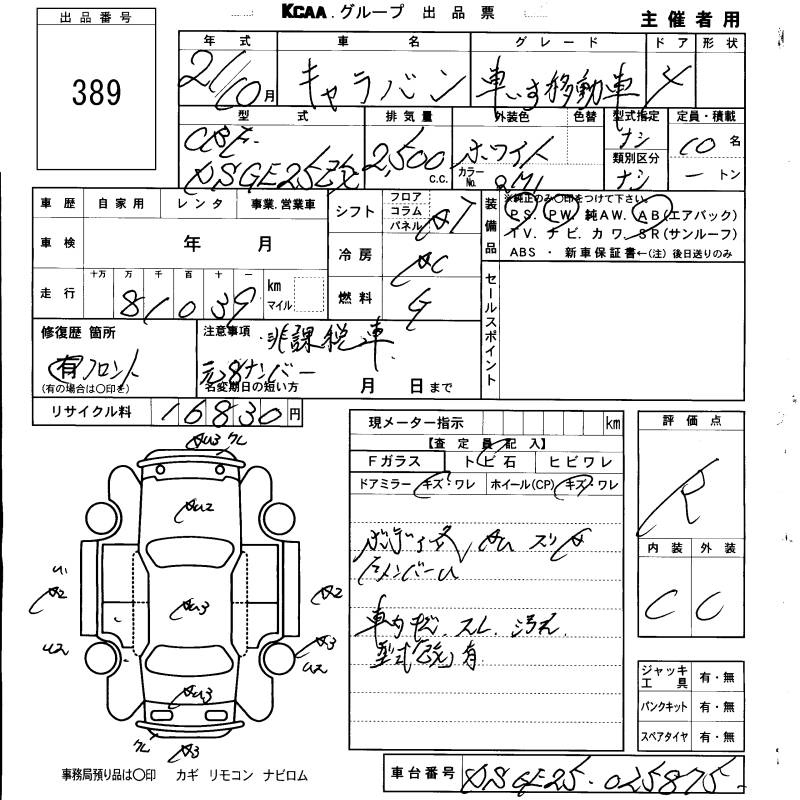 KCAA.グループ 出品票
主催者用
出品番号
389
年式 車名 グレード ドア 形状
21/10月 キャラバン 車いす移動車 4
型式 排気量 外装色 色替 型式指定 定員・積載
CBF-DSGE25改 2,500 c.c. ホワイト カラーNo. QM1 ナシ 10名
類別区分
ナシ ートン
車歴 自家用 レンタ 事業.営業車
シフト フロア コラム パネル AT
装備品 ※純正のみ○印をつけて下さい。
PS. PW. 純AW. AB(エアバック)
TV. ナビ. カワ. SR(サンルーフ)
ABS ・ 新車保証書←(注) 後日送りのみ
車検 年 月
冷房 AC
走行 十万 万 千 百 十 一
81039 km マイル
燃料 G
セールスポイント
修復歴 箇所
有 フロント
(有の場合は○印を)
注意事項 非課税車
元8ナンバー
名変期日の短い方 月 日まで
リサイクル料 16830円
現メーター指示 km
【査定員記入】
Fガラス トビ石 ヒビワレ
ドアミラー キズ・ワレ ホイール(CP) キズ・ワレ
ボディ 式 AU スリ A
車内 キズ. スレ. 汚れ.
型式「改」有
評価点
R
内装 外装
C C
AU3 クレ
AU2
A2
AU3
A2
U2
A3
U2
AU3
クレ A3
ジャッキ工具 有・無
パンクキット 有・無
スペアタイヤ 有・無
事務局預り品は○印 カギ リモコン ナビロム
車台番号 DSGE25-025875-